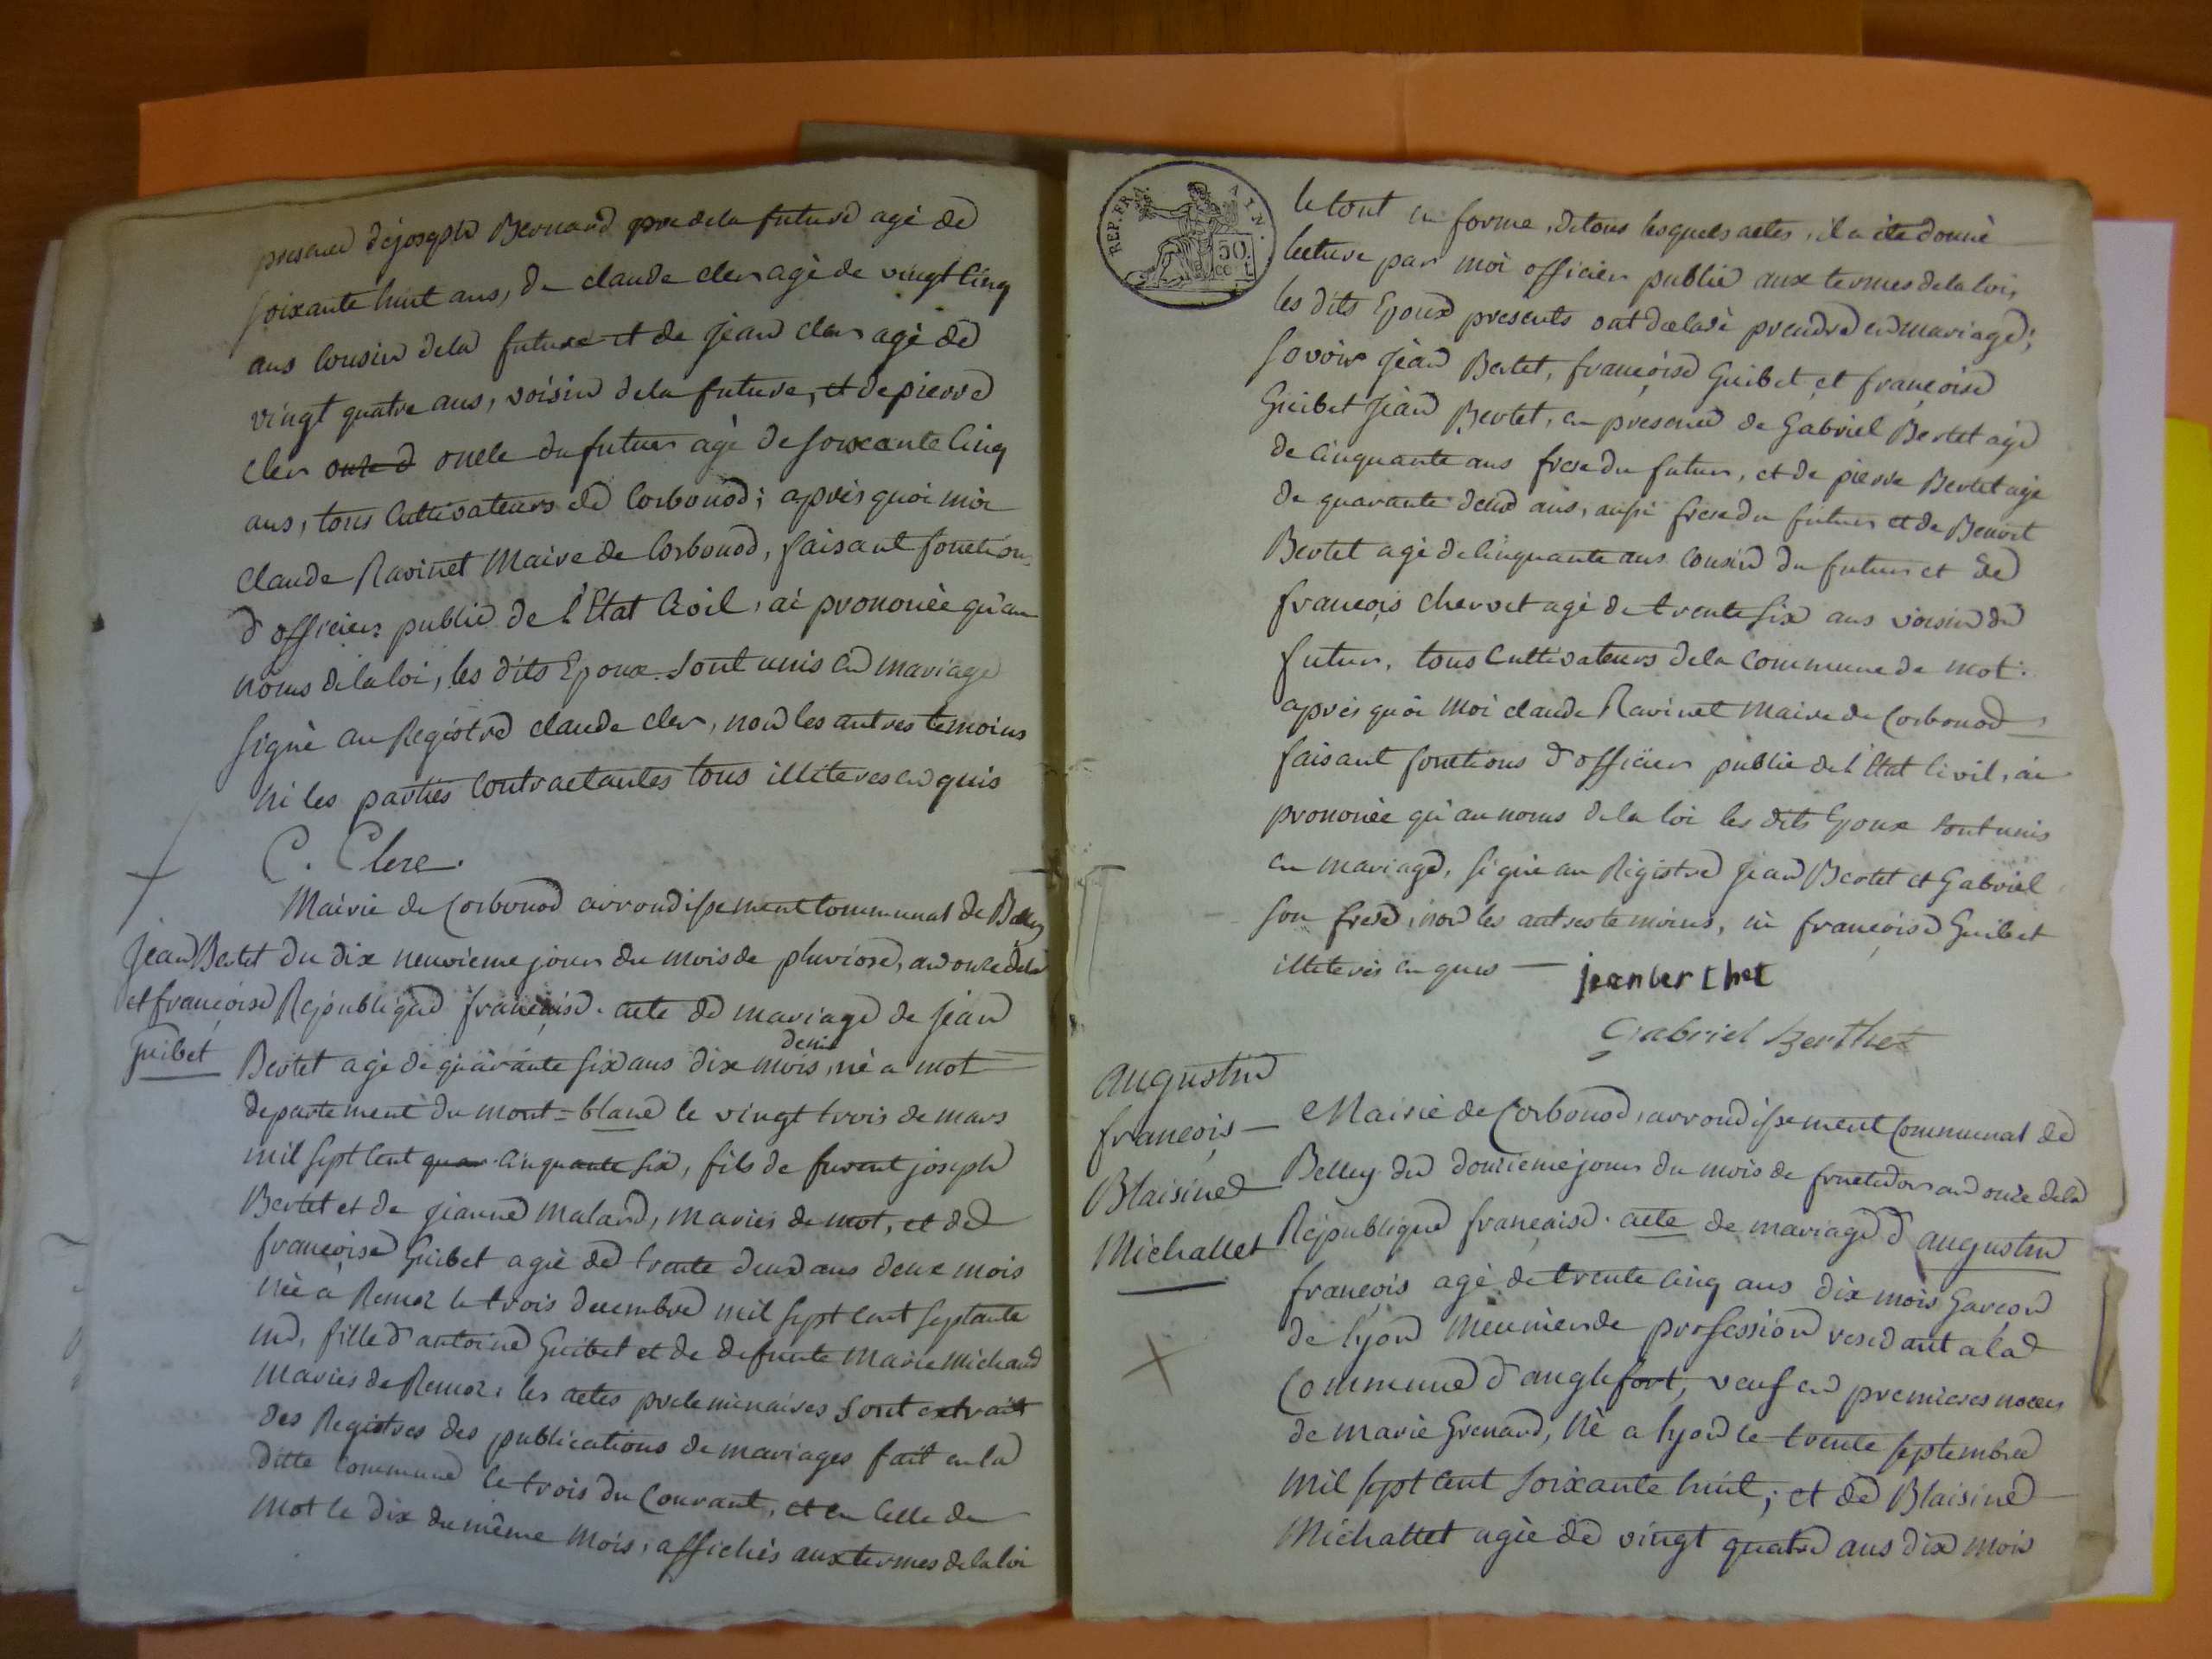 presence de joseph Bernard pere de la future agé de
soixante huit ans, de claude cler agé de vingt cinq
ans cousin de la future et de jean cler agé de
vingt quatre ans, voisin de la future, et de pierre
cler oncle du futur agé de soixante cinq
ans, tous cultivateurs de Corbonod; après quoi moi
Claude Ravinet Maire de Corbonod, faisant fonctions
d'officier public de l'Etat Civil, ai prononcée qu'au
noms de la loi, les dits Epoux sont unis en mariage
signé au Registre claude cler, non les autres temoins
ni les parties contractantes tous illiteres enquis
C. Clerc.
Mairie de Corbonod arrondissement communal de Belley
du dix neuvieme jour du mois de pluviose, an onze de la
Republique française. acte de mariage de jean
Bertet agé de quarante six ans dix mois demi, né a mot
departement du mont=blanc le vingt trois de mars
mil sept cent cinquante six, fils de furent joseph
Bertet et de jeanne malard, mariés de mot, et de
françoise Guibet agée de trente deux ans deux mois
née à Remoz le trois decembre mil sept cent septante
un, fille d'antoine Guibet et de defunte Marie Michaud
mariés de Remoz. les actes preleminaires sont extrait
des Registres des publications de mariages fait en la
ditte commune le trois du Courant, et en celle de
mot le dix du même mois, affichés aux termes de la loi
jean Bertet
et françoise
guibet
REP. FRA. AIN.
50
cent
le tout en forme, de tous lesquels actes, il a ete donné
lecture par moi officier public aux termes de la loi,
les dits Epoux presents ont declaré prendre en mariage;
savoir jean Bertet, françoise Guibet et françoise
Guibet jean Bertet, en presence de Gabriel Bertet agé
de cinquante ans frere du futur, et de pierre Bertet agé
de quarante deux ans, aussi frere du futur et de Benoit
Bertet agé de cinquante ans cousin du futur et de
françois chervet agé de trente six ans voisin du
futur, tous cultivateurs de la commune de mot.
après quoi moi claude Ravinet maire de Corbonod
faisant fonctions d'officier public de l'Etat Civil, ai
prononcée qu'au noms de la loi les dits Epoux sont unis
en mariage, signé au Registre jean Bertet et Gabriel
son frere, non les autres temoins, ni françoise Guibet
illiterés enquis — jean berthet
Gabriel Berthet
augustin
françois
Blaisine
Michallet
Mairie de Corbonod, arrondissement Communal de
Belley du douzieme jour du mois de fructidor an onze de la
Republique française. acte de mariage d'augustin
françois agé de trente cinq ans dix mois Garçon
de lyon meunier de profession residant a la
Commune d'anglefort, veuf en premieres noces
de marie Grenard, né a lyon le trente septembre
mil sept cent soixante huit; et de Blaisine
Michallet agée de vingt quatre ans dix mois